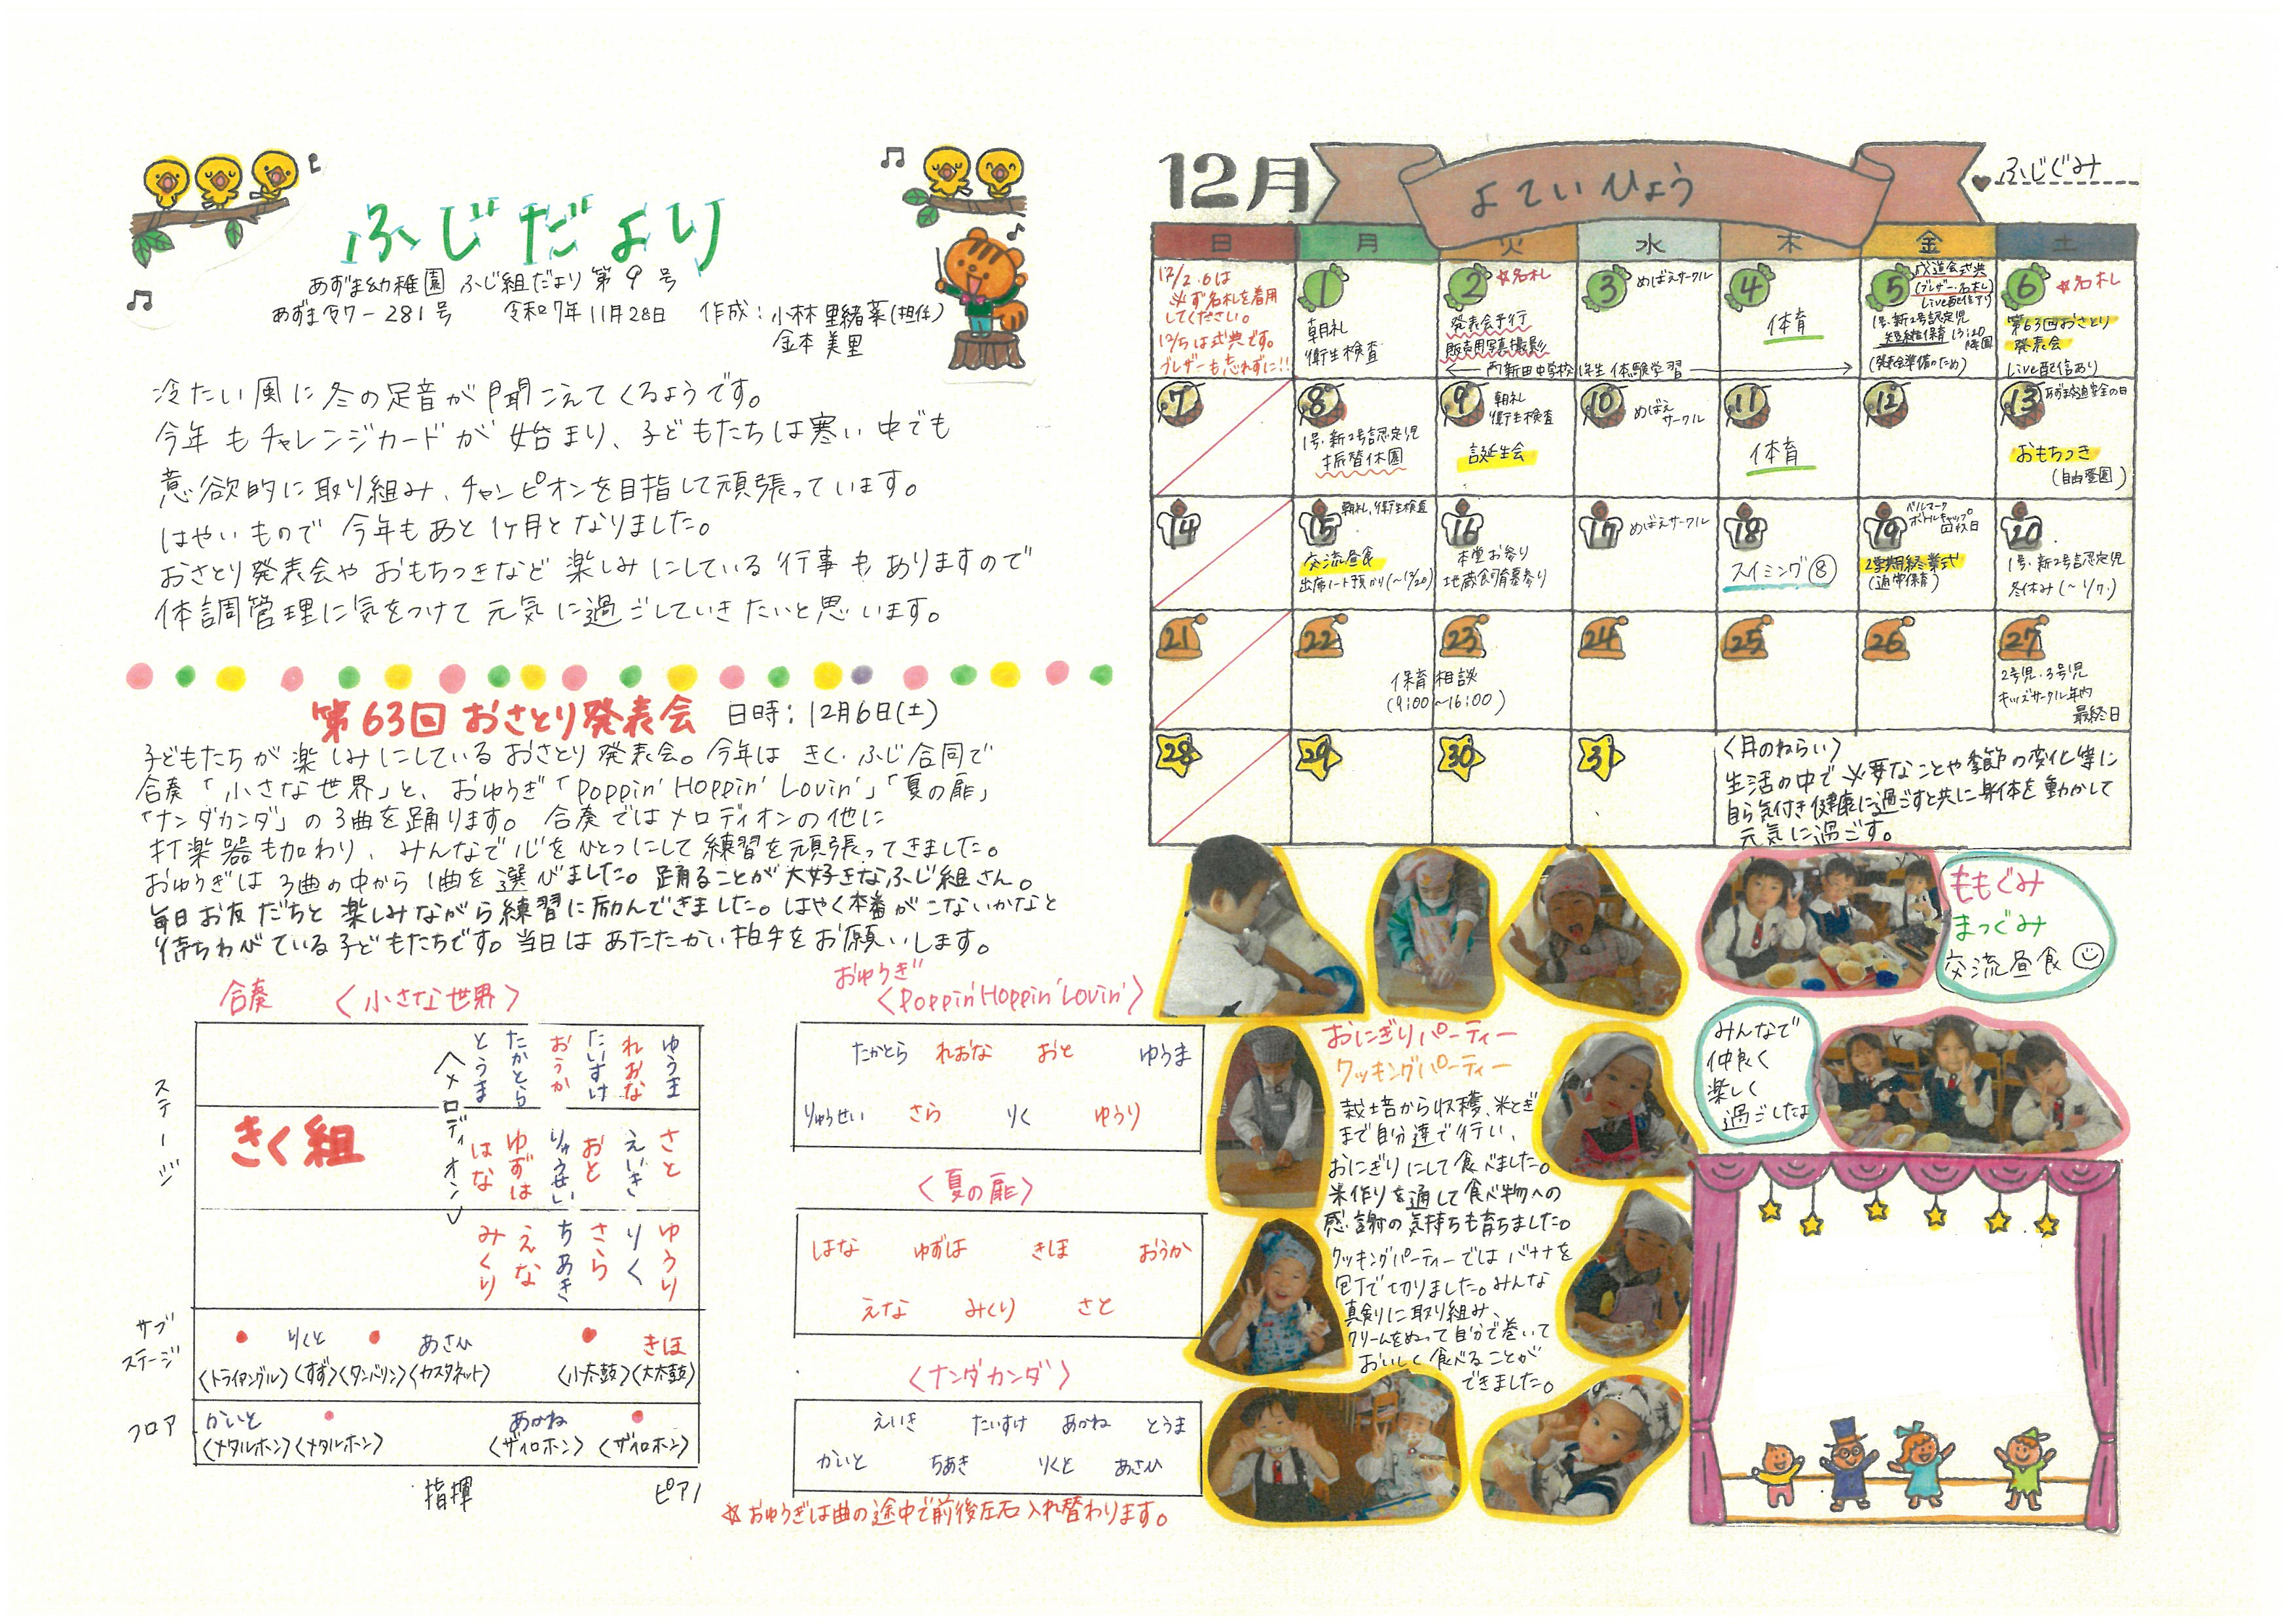 ふじだより
あずま幼稚園 ふじ組だより 第9号
あずま令7-281号 令和7年11月28日 作成:小林里緒菜(担任)
金本美里
冷たい風に冬の足音が聞こえてくるようです。
今年もチャレンジカードが始まり、子どもたちは寒い中でも
意欲的に取り組み、チャンピオンを目指して頑張っています。
はやいもので今年もあと1ヶ月となりました。
おさとり発表会やおもちつきなど楽しみにしている行事もありますので
体調管理に気をつけて元気に過ごしていきたいと思います。
第63回 おさとり発表会 日時:12月6日(土)
子どもたちが楽しみにしているおさとり発表会。今年は きく・ふじ合同で
合奏「小さな世界」と、おゆうぎ「Poppin' Hoppin' Lovin'」「夏の扉」
「ナンダカンダ」の3曲を踊ります。合奏ではメロディオンの他に
打楽器も加わり、みんなで心をひとつにして練習を頑張ってきました。
おゆうぎは3曲の中から1曲を選びました。踊ることが大好きなふじ組さん。
毎日お友だちと楽しみながら練習に励んできました。はやく本番がこないかなと
待ちわびている子どもたちです。当日はあたたかい拍手をお願いします。
合奏 〈小さな世界〉
ステージ
ゆうま
れおな
たいすけ
おうか
たかとら
とうま
〈メロディオン〉
きく組
さと
えいき
おと
りゅうせい
ゆずは
はな
ゆうり
りく
さら
ちあき
えな
みくり
サブ
ステージ
りくと あさひ きほ
〈トライアングル〉〈すず〉〈タンバリン〉〈カスタネット〉 〈小太鼓〉〈大太鼓〉
フロア
かいと あかね
〈メタルホン〉〈メタルホン〉 〈ザイロホン〉 〈ザイロホン〉
指揮 ピアノ
おゆうぎ
〈Poppin' Hoppin' Lovin'〉
たかとら れおな おと ゆうま
りゅうせい さら りく ゆうり
〈夏の扉〉
はな ゆずは きほ おうか
えな みくり さと
〈ナンダカンダ〉
えいき たいすけ あかね とうま
かいと ちあき りくと あさひ
☆おゆうぎは曲の途中で前後左右入れ替わります。
12月 よていひょう ♥ふじぐみ
日 月 火 水 木 金 土
12/2.6は
必ず名札を着用
してください。
12/5は式典です。
ブレザーも忘れずに!!
1
朝礼
衛生検査
2 ☆名札
発表会予行
販売用写真撮影
3 めばえサークル
4
体育
←西新田中学校1年生体験学習→
5 成道会式典
(ブレザー・名札)
Live配信アリ
1号・新2号認定児
短縮保育13:20
降園
(発表会準備のため)
6 ☆名札
第63回おさとり
発表会
Live配信あり
7
8
1号・新2号認定児
振替休園
9 朝礼
衛生検査
誕生会
10 めばえ
サークル
11
体育
12
13 あずま交通安全の日
おもちつき
(自由登園)
14
15 朝礼、衛生検査
交流昼食
出席ノート預かり(~12/20)
16
本堂お参り
17 めばえサークル
18
スイミング⑧
19 ベルマーク
ボトルキャップ
回収日
2学期終業式
(通常保育)
20
1号・新2号認定児
冬休み(~1/7)
21
22
23
保育相談
(9:00~16:00)
24
25
26
27
2号児・3号児
キッズサークル年内
最終日
28
29
30
31
〈月のねらい〉
生活の中で必要なことや季節の変化等に
自ら気付き健康に過ごすと共に身体を動かして
元気に過ごす。
ももぐみ
まつぐみ
交流昼食
みんなで
仲良く
楽しく
過ごしたよ
おにぎりパーティー
クッキングパーティー
栽培から収穫、米とぎ
まで自分達で行い、
おにぎりにして食べました。
米作りを通して食べ物への
感謝の気持ちも育ちました。
クッキングパーティーではバナナを
包丁で切りました。みんな
真剣に取り組み、
クリームをぬって自分で巻いて
おいしく食べることが
できました。